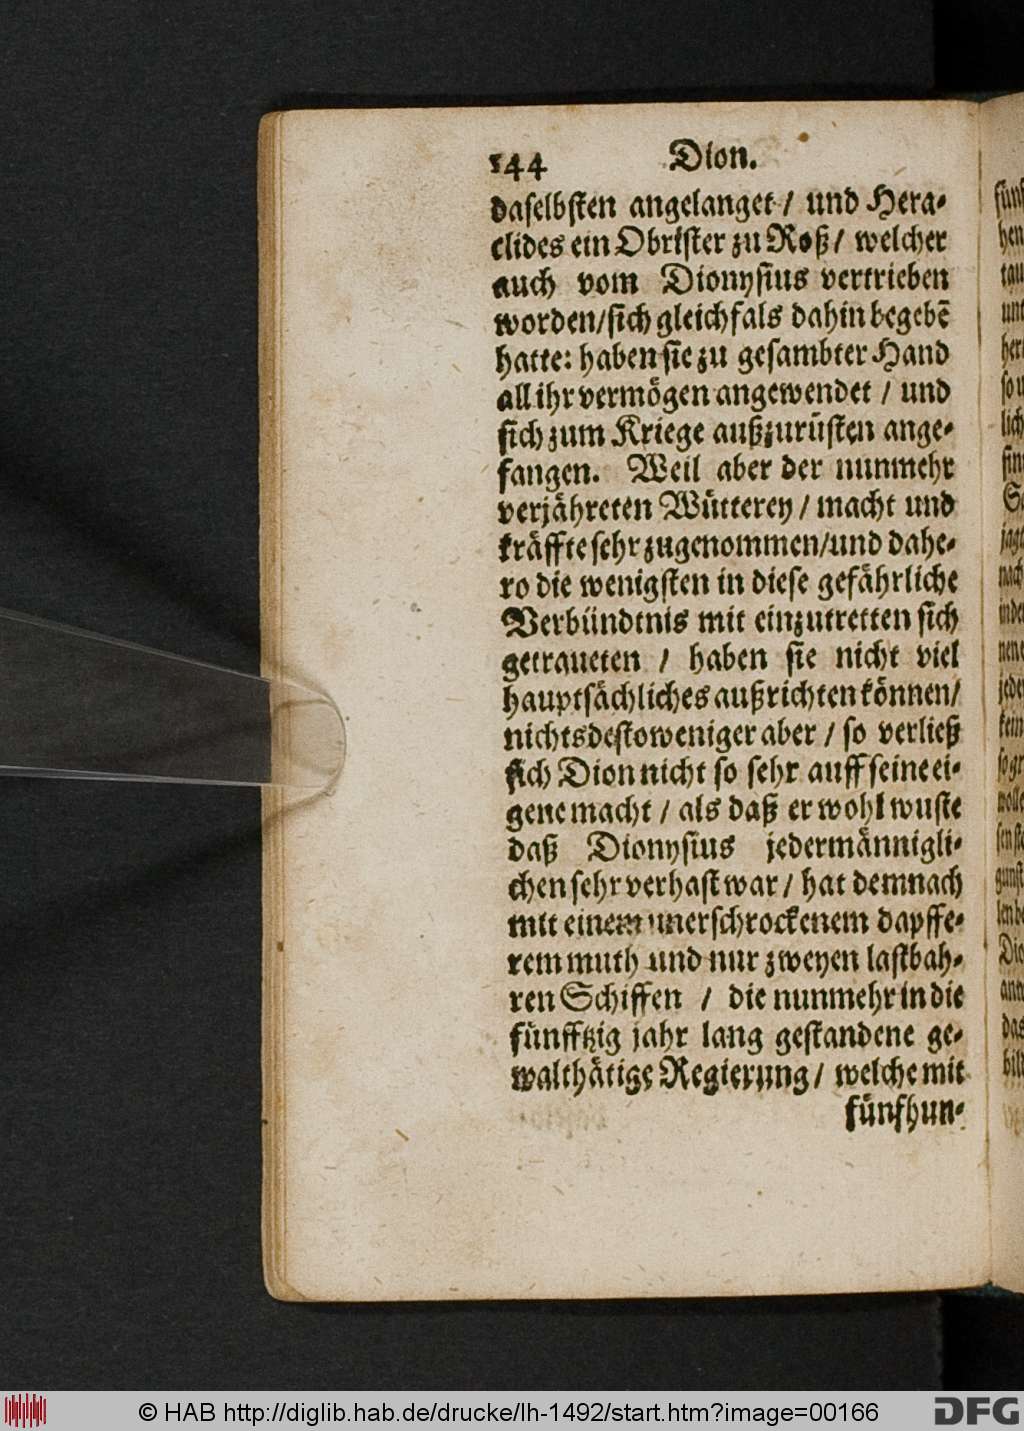 144 Dion.
daselbsten angelanget / und Hera-
clides ein Obrister zu Roß / welcher
auch vom Dionysius vertrieben
worden/sich gleichfals dahin begebē
hatte: haben sie zu gesambter Hand
all ihr vermögen angewendet / und
sich zum Kriege außzurüsten ange-
fangen. Weil aber der nunmehr
verjähreten Wütterey / macht und
kräffte sehr zugenommen/und dahe-
ro die wenigsten in diese gefährliche
Verbündtnis mit einzutretten sich
getraueten / haben sie nicht viel
hauptsächliches außrichten können/
nichtsdestoweniger aber / so verließ
sich Dion nicht so sehr auff seine ei-
gene macht / als daß er wohl wuste
daß Dionysius jedermännigli-
chen sehr verhast war / hat demnach
mit einem unerschrockenem dapffe-
rem muth und nur zweyen lastbah-
ren Schiffen / die nunmehr in die
fünfftzig jahr lang gestandene ge-
walthätige Regierung / welche mit
fünfhun-
© HAB http://diglib.hab.de/drucke/lh-1492/start.htm?image=00166
DFG